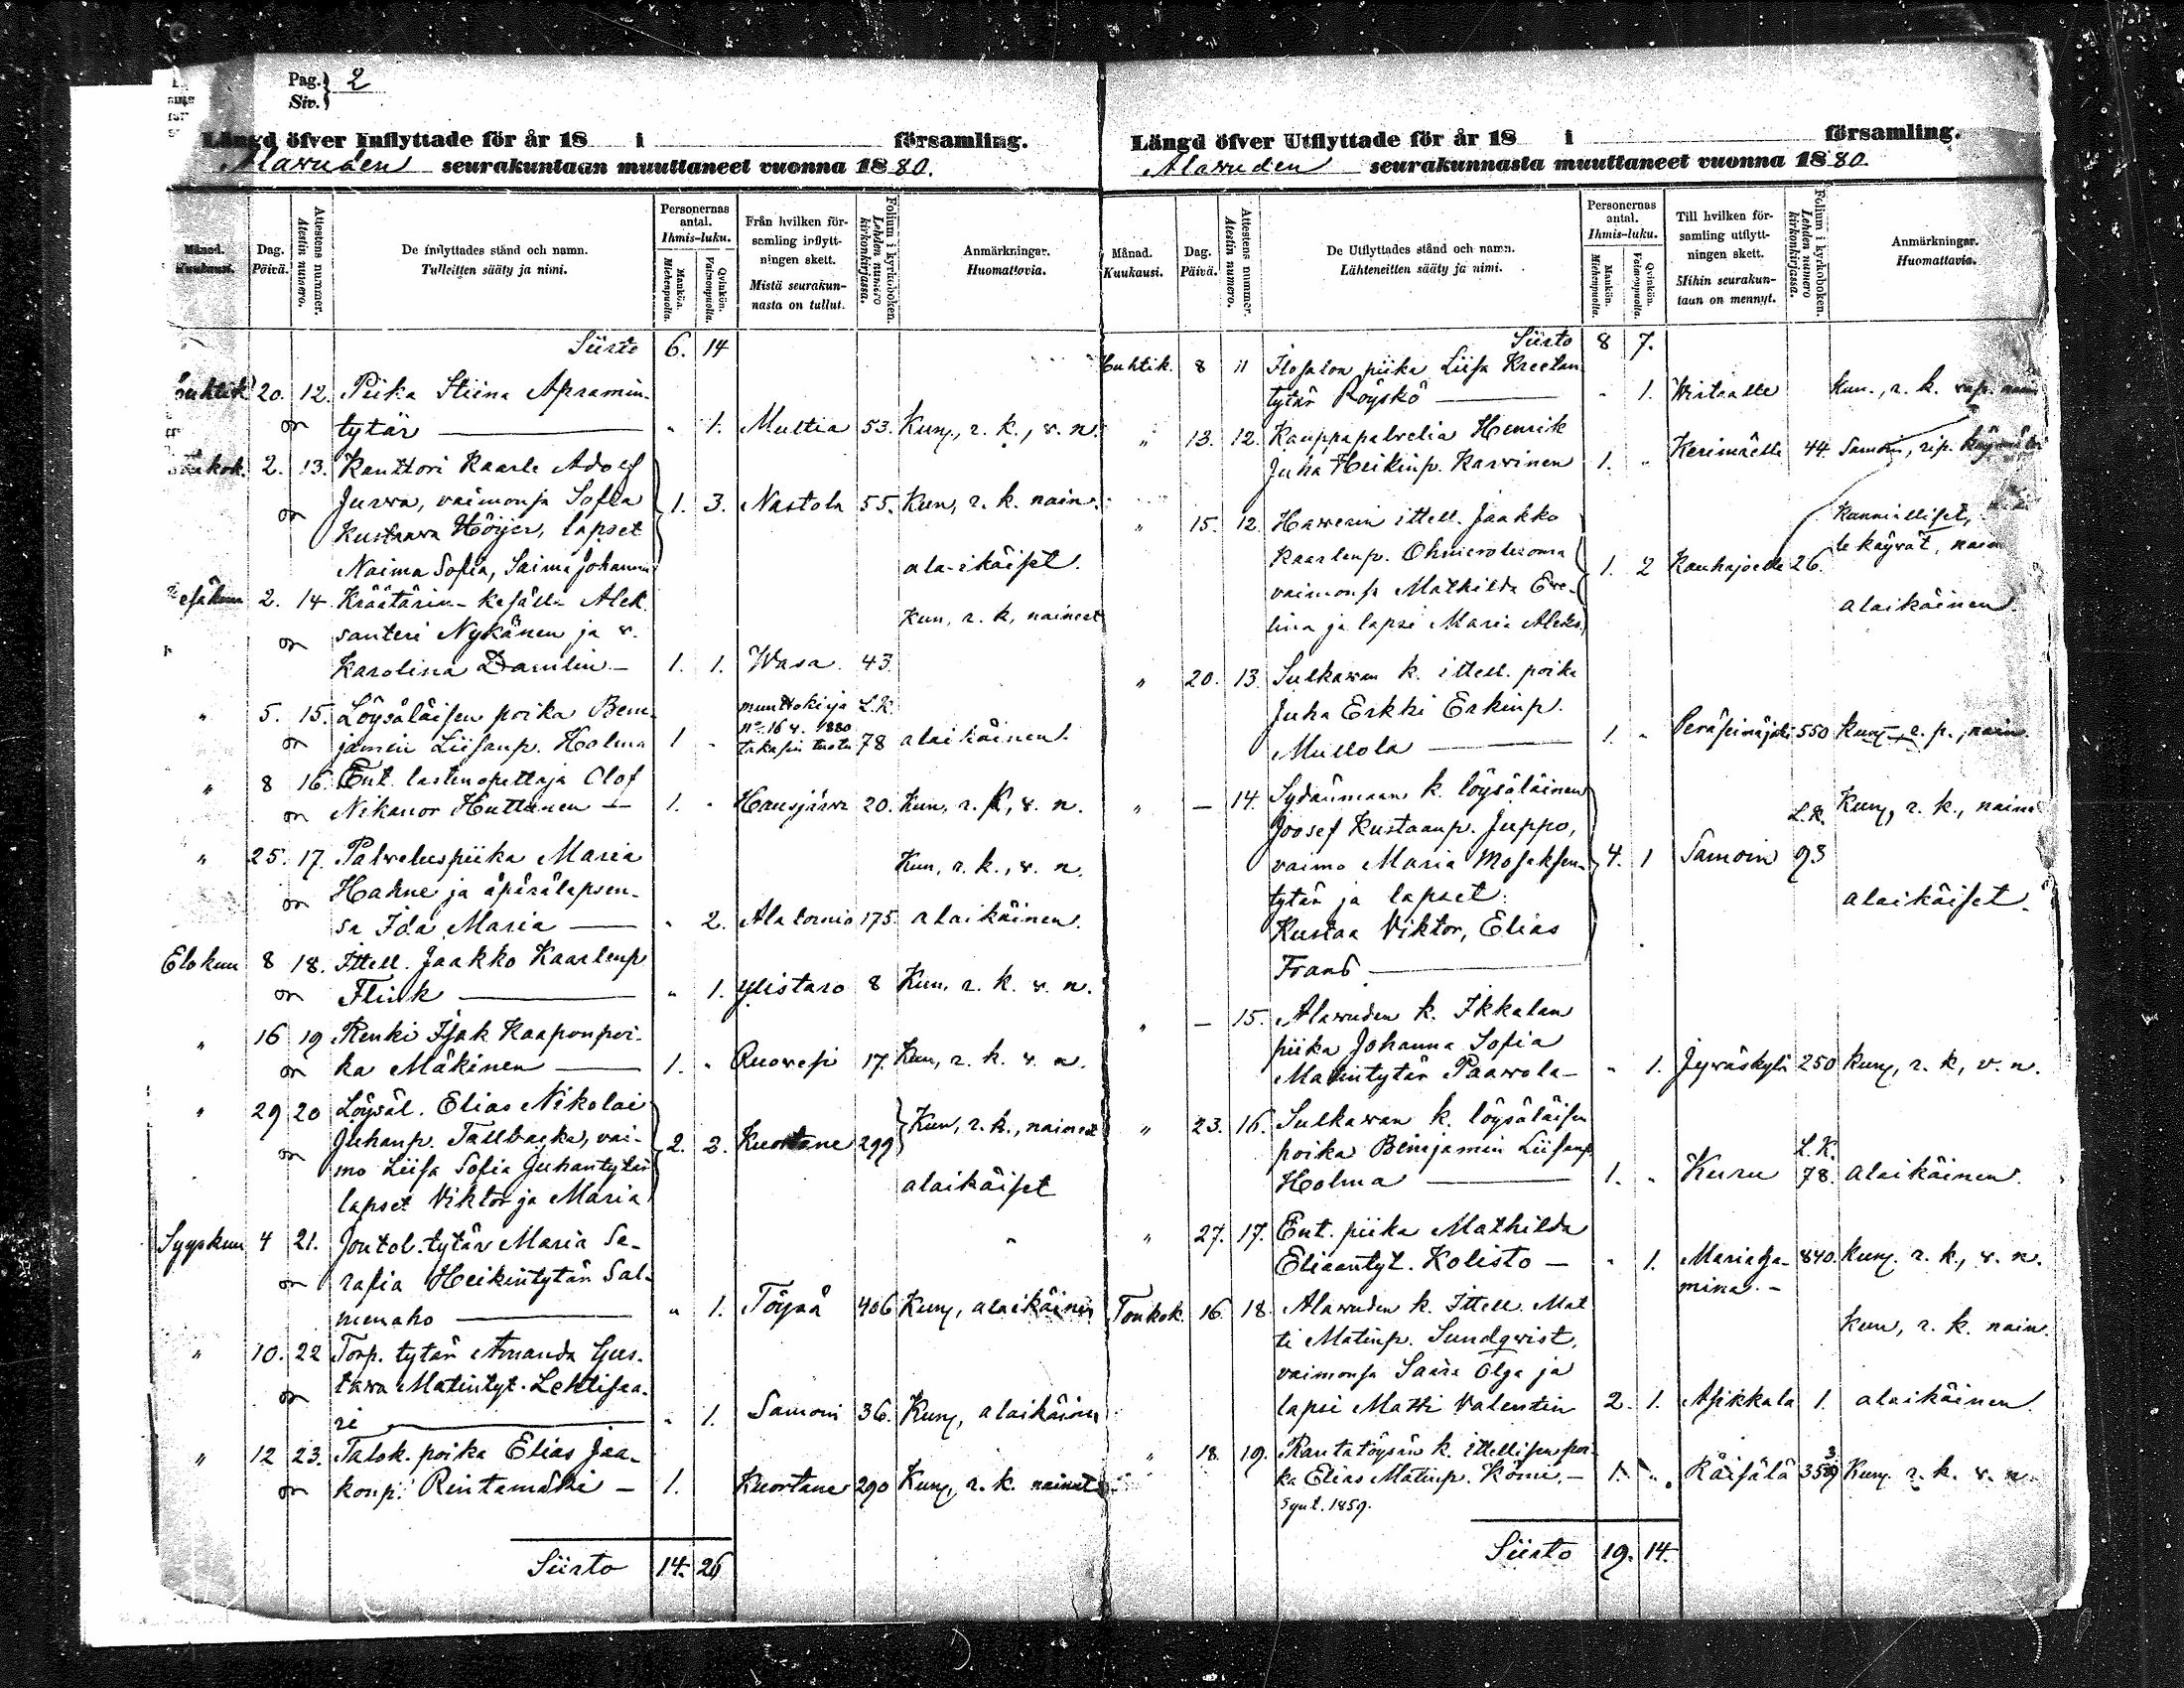 Pag. 2
Siv.
Längd öfver Inflyttade för år 18 i församling.
Alavuden seurakuntaan muuttaneet vuonna 1880.
Månad. Kuukausi.
Dag. Päivä.
Attestens nummer. Atestin numero.
De inflyttades stånd och namn.
Tulleitten sääty ja nimi.
Personernas antal. Ihmis-luku.
Mankön. Miehenpuolia.
Qvinkön. Vaimonpuolia.
Från hvilken församling inflyttningen skett.
Mistä seurakunnasta on tullut.
Folium i kyrkoboken. Lehden numero kirkonkirjassa.
Anmärkningar. Huomattavia.
Siirto 6. 14
20. 12. Piika Stiina Apramin
on tytär — " 1. Multia 53. Kunn., r. k., v. n.
2. 13. Kanttori Kaarle Adolf
on Jurva, vaimonsa Sofia 1. 3. Nastola 55. Kun, r. k. nain.
Kustaava Höijer, lapset
Naima Sofia, Saima Johanna alaikäiset.
Kesäkuu 2. 14. Kräätärin-kesälli Alek
on santeri Nykänen ja v. Kun, r. k, naineet
Karolina Damlin — 1. 1. Wasa 43.
" 5. 15. Löysäläisen poika Ben muuttokirja L.K.
on jamin Liisanp. Holma 1 " No 164. 1880 takasin tuotu 78 alaikäinen.
" 8 16. Ent. lastenopettaja Olof
on Nikanor Huttunen — 1. " Hausjärvi 20. Kun, r. k, v. n.
" 25. 17. Palveluspiika Maria Kun, r. k., v. n.
on Hahne ja äpärälapsen-
sa Ida Maria — " 2. Alatornio 175. alaikäinen.
Elokuu 8 18. Ittell. Jaakko Kaarlenp
on Flink — " 1. Ylistaro 8 Kun, r. k. v. n.
" 16 19 Renki Isak Kaaponpoi-
on ka Mäkinen — 1. " Ruovesi 17. Kun, r. k. v. n.
" 29 20 Löysäl. Elias Nikolai
on Juhanp. Tallbacka, vai- 2. 2. Kuortane 299 Kun, r. k., naineet
mo Liisa Sofia Juhantytär
lapset Viktor ja Maria alaikäiset
Syyskuu 4 21. Joutol. tytär Maria Se-
on rafia Heikintytär Sal-
menaho — " 1. Töysä 406 Kunn, alaikäinen
" 10. 22 Torp. tytär Amanda Gus-
on tava Matintyt. Lehtisaa-
ri — " 1. Samoin 36. Kunn, alaikäinen
" 12 23. Talok. poika Elias Jaa-
on konp. Rintamäki — 1. Kuortane 290 Kunn, r. k. nainut
Siirto 14. 26
Längd öfver Utflyttade för år 18 i församling.
Alavuden seurakunnasta muuttaneet vuonna 1880.
Månad. Kuukausi.
Dag. Päivä.
Attestens nummer. Atestin numero.
De Utflyttades stånd och namn.
Lähteneitten sääty ja nimi.
Personernas antal. Ihmis-luku.
Mankön. Miehenpuolia.
Qvinkön. Vaimonpuolia.
Till hvilken församling utflyttningen skett.
Mihin seurakuntaan on mennyt.
Folium i kyrkoboken. Lehden numero kirkonkirjassa.
Anmärkningar. Huomattavia.
Siirto 8 7.
Huhtik. 8 11 Flosalon piika Liisa Kreetan
tytär Röyskö — " 1. Virtaalle Kun., r. k.
" 13. 12. Kauppapalvelia Henrik
Juha Heikinp. Karvinen 1. " Kerimäelle 44. Samoin, rip.
" 15. 12. Haverin ittell. Jaakko Kunnialliset,
Kaarlenp. 1. 2 Kauhajoelle 26.
vaimonsa Mathilda Eve-
lina ja lapsi Maria Aleks. alaikäinen
" 20. 13. Sulkavan k. ittell. poika
Juha Erkki Erkinp.
Mullola — 1. " Peräseinäjoki 550 Kunn, r. p., nain.
" — 14. Sydänmaan k. löysäläinen L.K. Kunn, r. k.,
Joosef Kustaanp. Juppo,
vaimo Maria Moseksen- 4. 1 Samoin 93
tytär ja lapset: alaikäiset.
Kustaa Viktor, Elias
Frans —
" — 15. Alavuden k. Ikkalan
piika Johanna Sofia
Matintytär Paavola — " 1. Jyväskylä 250 Kunn, r. k, v. n.
" 23. 16. Sulkavan k. löysäläisen
poika Benjamin Liisanp L.K.
Holma — 1. " Kuru 78. alaikäinen.
" 27. 17. Ent. piika Mathilda
Eliaantyt. Kolisto — " 1. Mariehamina. — 840. Kunn. r. k., v. n.
Toukok. 16 18. Alavuden k. Ittell. Mat
ti Matinp. Sundqvist, Kun, r. k. nain.
vaimonsa Saara Olga ja
lapsi Matti Valentin 2. 1. Asikkala 1. alaikäinen.
" 18. 19. Rantatöysän k. ittellisen poi-
ka Elias Matinp. Kömi. — 1. " Räisälä Kunn. r. k. v. n.
Synt. 1859.
Siirto 19. 14.